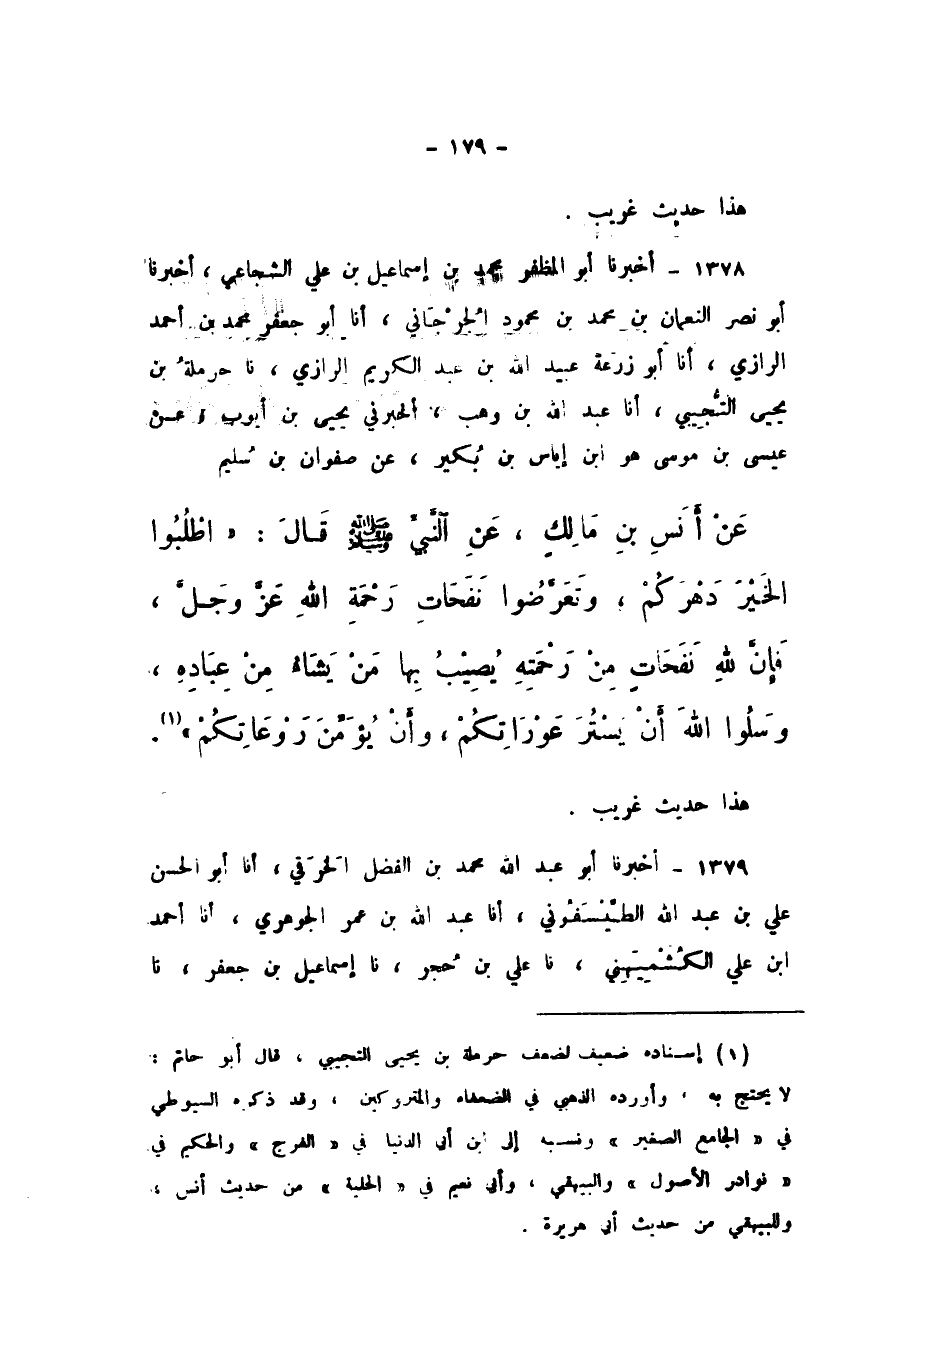 - ١٧٩ -
هذا حديث غريب .
١٣٧٨ - أخبرنا أبو المظفر محمد بن إسماعيل بن علي الشجاعي ، أخبرنا
أبو نصر النعمان بن محمد بن محمود الجُرْجَاني ، أنا أبو جعفر محمد بن أحمد
الرازي ، أنا أبو زرعة عبيد الله بن عبد الكريم الرازي ، نا حرملةُ بن
يحيى التُّجِيبي ، أنا عبد الله بن وهب ، أخبرني يحيى بن أيوب ، عن
عيسى بن موسى هو ابن إياس بن بُكير ، عن صفوان بن سُليم
عَنْ أَنَسِ بنِ مَالِكٍ ، عَنِ النَّبيِّ ﷺ قَالَ : « اطْلُبُوا
الخَيْرَ دَهْرَكُمْ ، وتَعَرَّضُوا نَفَحَاتِ رَحْمَةِ اللهِ عَزَّ وجَلَّ ،
فَإِنَّ للهِ نَفَحَاتٍ مِنْ رَحْمَتِهِ يُصِيْبُ بِها مَنْ يَشَاءُ مِنْ عِبَادِهِ ،
وسَلُوا اللهَ أَنْ يَسْتُرَ عَوْرَاتِكُمْ ، وأَنْ يُؤَمِّنَ رَوْعَاتِكُمْ »(١).
هذا حديث غريب .
١٣٧٩ - أخبرنا أبو عبد الله محمد بن الفضل الخَرَقي ، أنا أبو الحسن
علي بن عبد الله الطَّيْسَفُوني ، أنا عبد الله بن عمر الجوهري ، أنا أحمد
ابن علي الكُشْمِيهَني ، نا علي بن حُجر ، نا إسماعيل بن جعفر ، نا
(١) إسناده ضعيف لضعف حرملة بن يحيى التجيبي ، قال أبو حاتم :
لا يحتج به ، وأورده الذهبي في الضعفاء والمتروكين ، وقد ذكره السيوطي
في « الجامع الصغير » ونسبه إلى ابن أبي الدنيا في « الفرج » والحكيم في
« نوادر الأصول » والبيهقي ، وأبي نعيم في « الحلية » من حديث أنس ،
وللبيهقي من حديث أبي هريرة .